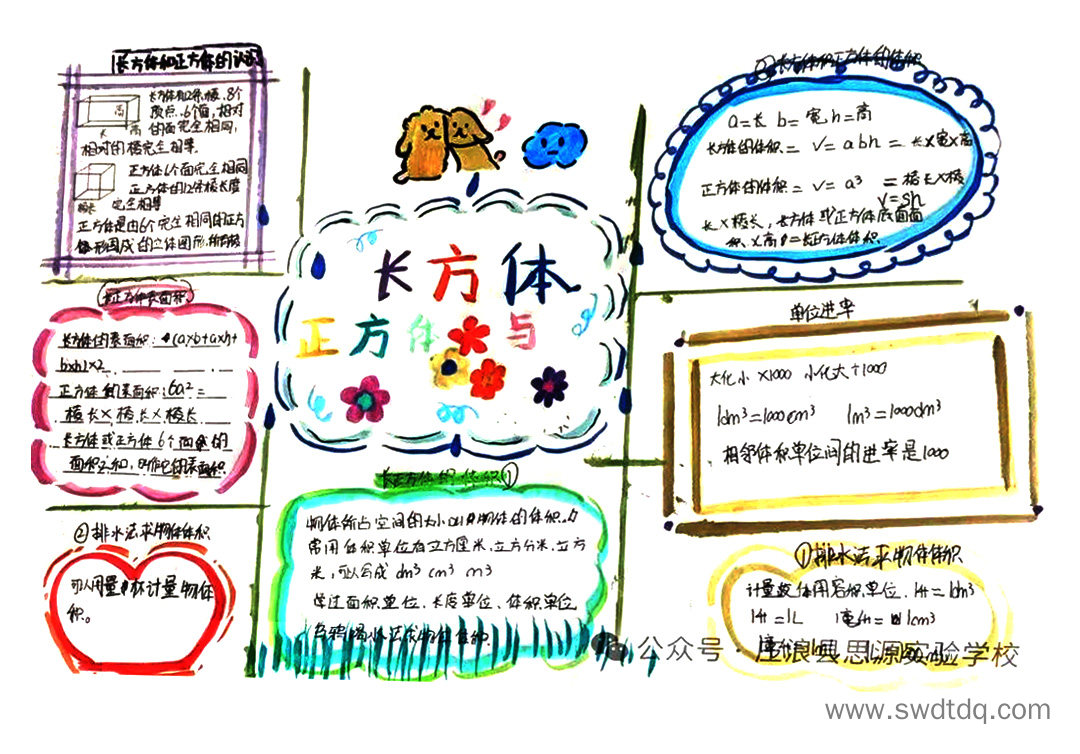 长方体和正方体的认识
长方体有12条棱,8个
顶点,6个面,相对
的面完全相同,
相对的棱完全相等.
高
长
正方体6个面完全相同
正方体的12条棱长度
完全相等
棱长
正方体是由6个完全相同的正方
体形围成的立体图形,
长正方体表面积
长方体的表面积:(a×b+a×h+
b×h)×2
正方体的表面积:6a²=
棱长×棱长×棱长
长方体或正方体6个面的
面积之和,叫作它的表面积
②排水法求物体体积
可以用量杯计量物体
积。
长方体
正方体与
长正方体的体积①
物体所占空间的大小叫物体的体积.
常用体积单位有立方厘米,立方分米,立方
米,可以写成 dm³ cm³ m³
学过面积单位、长度单位、体积单位
②长方体和正方体的体积
a=长 b=宽 h=高
长方体的体积=V=abh=长×宽×高
正方体的体积=V=a³=棱长×棱
V=Sh
长×棱长,长方体或正方体底面面
积×高=长正方体体积
单位进率
大化小×1000 小化大÷1000
1dm³=1000cm³ 1m³=1000dm³
相邻体积单位间的进率是1000
①排水法求物体体积
计量液体用容积单位,1升=1dm³
1升=1L 1毫升=1cm³
公众号·崖浪县思源实验学校
www.swdtdq.com